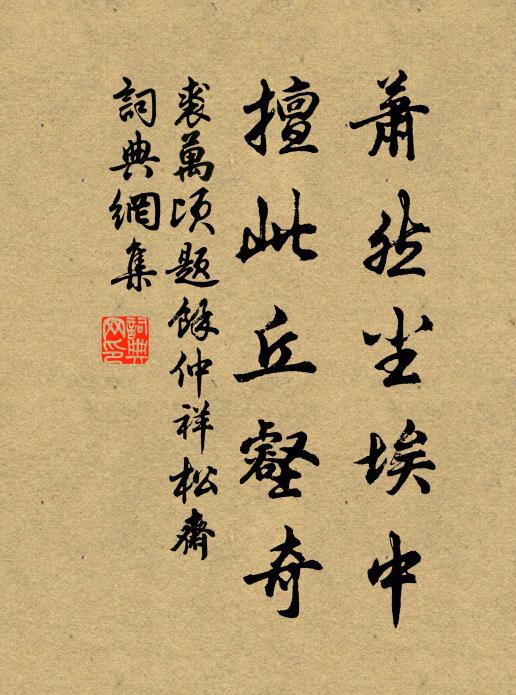 蕭然尘埃中
擅此丘壑奇
裘萬頃題餘仲祥松齋
詞典網集
詞典网印